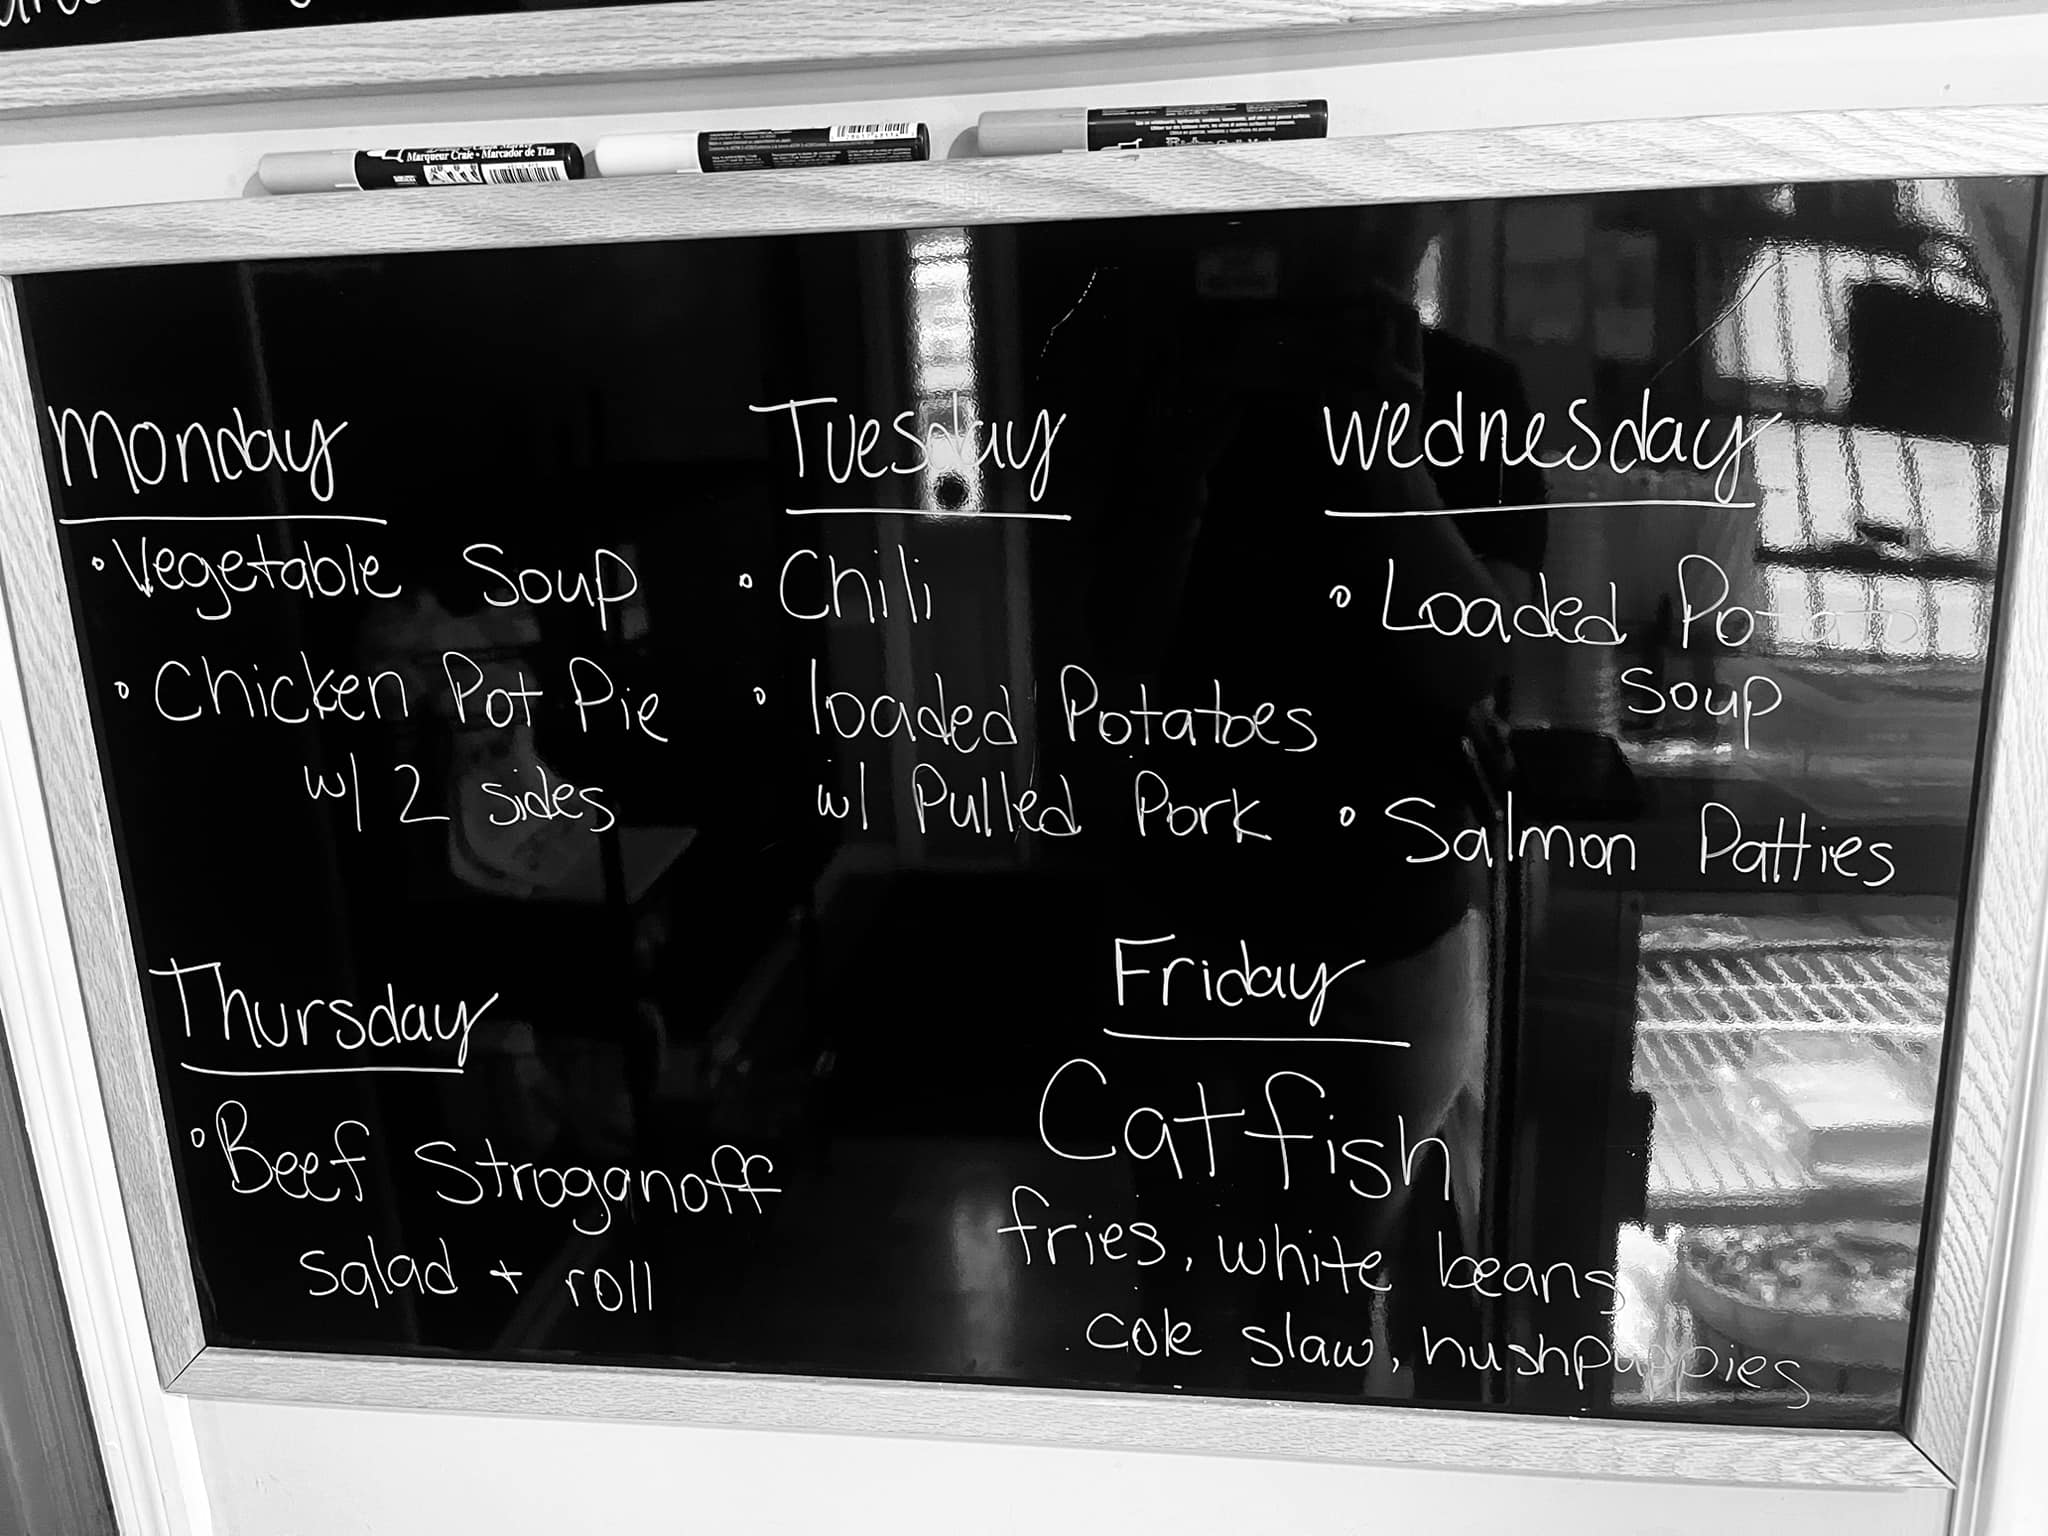 Marqueur Craie • Marcador de Tiza
Monday
• Vegetable Soup
• Chicken Pot Pie
w/ 2 sides
Tuesday
• Chili
• loaded Potatoes
w/ Pulled Pork
Wednesday
• Loaded Potato
Soup
• Salmon Patties
Thursday
• Beef Stroganoff
salad + roll
Friday
Catfish
fries, white beans
cole slaw, hushpuppies